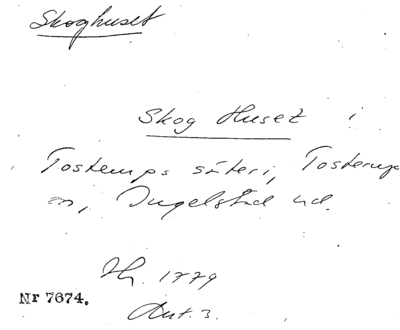 Skoghuset
Skog Huset i
Tosterups säteri, Tosterups
sn, Ingelstad hd.
Hf. 1779
Nr 7674.
Ant. 3.